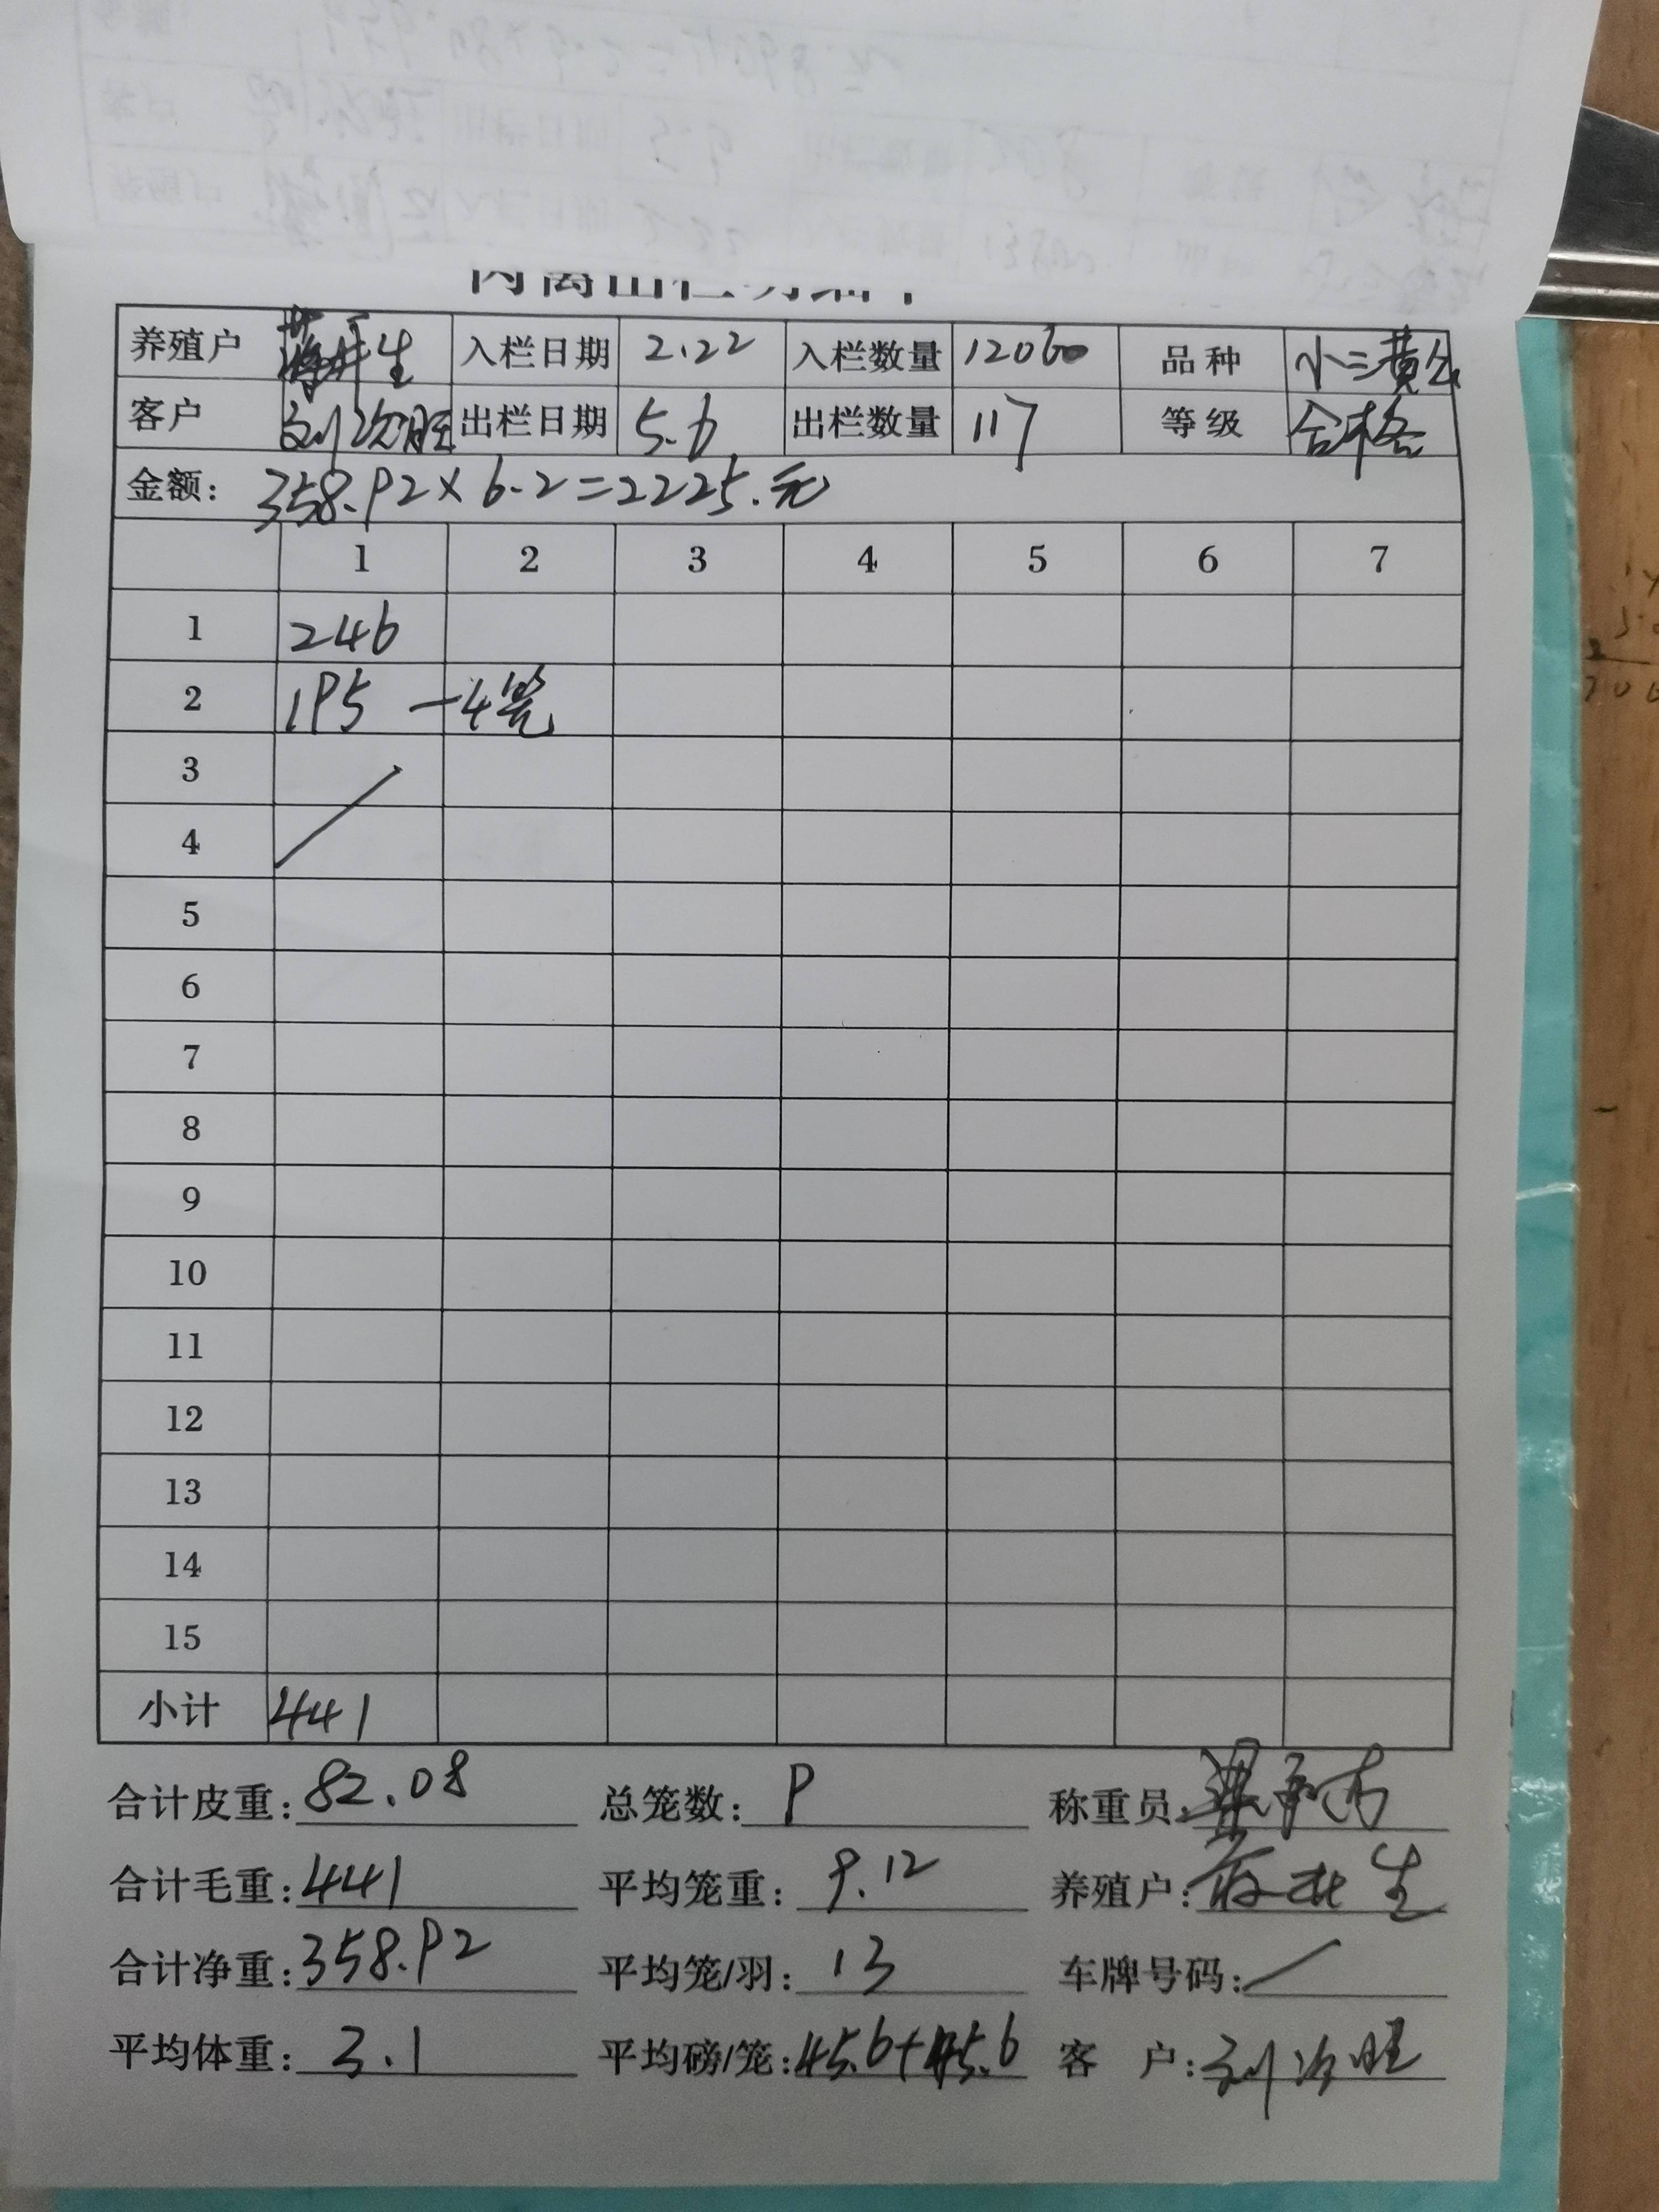 养殖户 生 入栏日期 2.22 入栏数量 12060 品种 小三黄公
客户 刘次旺 出栏日期 5.6 出栏数量 117 等级 合格
金额: 358.92×6.2=2225.元
1 2 3 4 5 6 7
1 246
2 195 -4笼
3
4
5
6
7
8
9
10
11
12
13
14
15
小计 441
合计皮重: 82.08 总笼数: 9 称重员:
合计毛重: 441 平均笼重: 9.12 养殖户: 生
合计净重: 358.92 平均笼/羽: 13 车牌号码: /
平均体重: 3.1 平均磅/笼: 45.6+45.6 客 户: 刘次旺